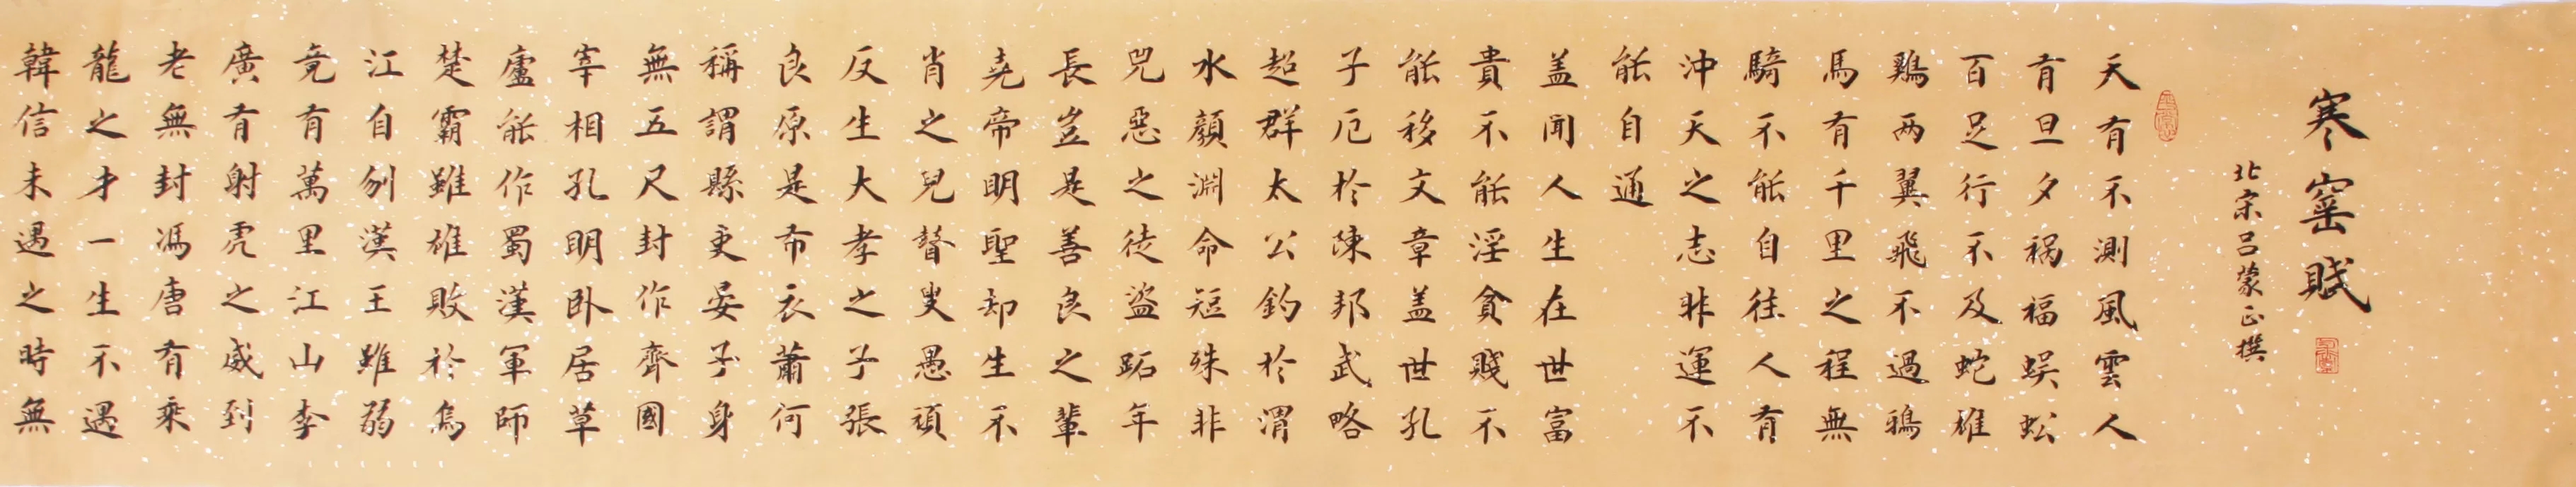 寒窰賦
北宋呂蒙正撰
天有不測風雲人
有旦夕禍福蜈蚣
百足行不及蛇雄
鷄两翼飛不過鴉
馬有千里之程無
騎不能自往人有
沖天之志非運不
能自通
盖聞人生在世富
貴不能淫貪賤不
能移文章盖世孔
子厄於陳邦武略
超群太公釣於渭
水顏淵命短殊非
兇惡之徒盜跖年
長豈是善良之輩
堯帝明聖却生不
肖之兒瞽叟愚頑
反生大孝之子張
良原是布衣蕭何
稱謂縣吏晏子身
無五尺封作齊國
宰相孔明卧居草
廬能作蜀漢軍師
楚霸雖雄敗於烏
江自刎漢王雖弱
竟有萬里江山李
廣有射虎之威到
老無封馮唐有乘
龍之才一生不遇
韓信未遇之時無